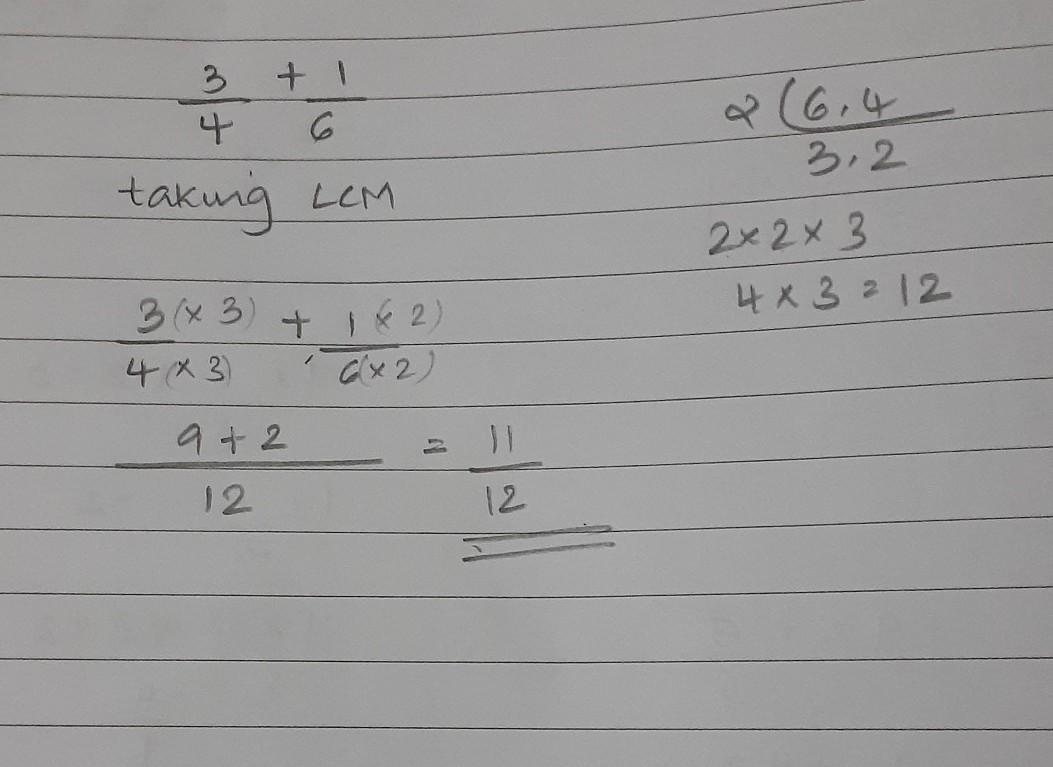 3/4 + 1/6
taking LCM
3(×3)/4(×3) + 1(×2)/6(×2)
9+2/12 = 11/12
2(6,4
3,2
2×2×3
4×3=12